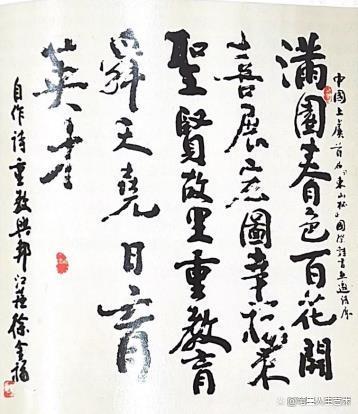 中國上虞首屆東山杯國際詩書畫邀請展
滿園春色百花開
喜展宏圖幸福來
聖賢故里重教育
舜天堯日育
英才
自作詩重教興邦江蘇徐金